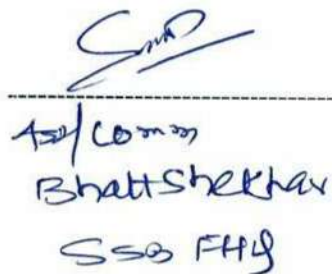 Asst/Comm
Bhatt Shekhar
SSB FHQ